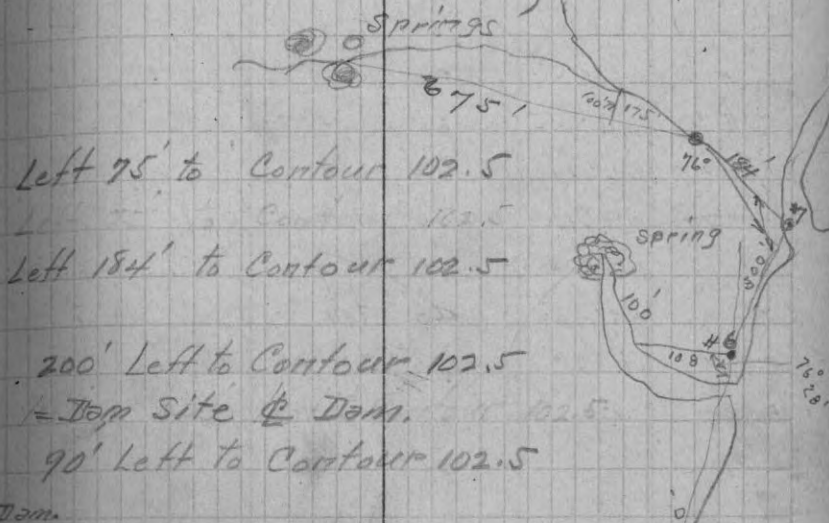 Springs
675'
100' 175'
76°
184'
#7
Left 75' to Contour 102.5
Left 184' to Contour 102.5
spring
300'
100'
#6
108
76°
28'
200' Left to Contour 102.5
= Dam Site ℄ Dam.
90' Left to Contour 102.5
Dam.